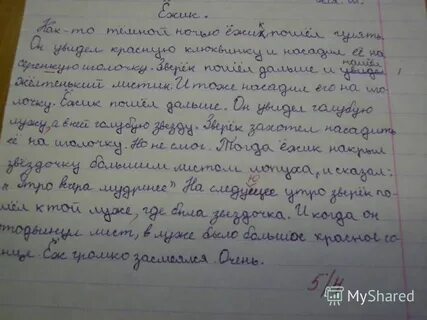 Ёжик.
Как-то темной ночью ёжик пошёл гулять.
Он увидел красную клюквинку и насадил её на
серенькую иголочку. Зверёк пошёл дальше и увидел нашёл
жёлтенький листик. И тоже насадил его на иго-
лочку. Ёжик пошёл дальше. Он увидел голубую
лужу, а в ней голубую звезду. Зверёк захотел насадить
её на иголочку. Но не смог. Тогда ёжик накрыл
звёздочку большим листом лопуха, и сказал:
"Утро вечера мудренее" На следующее утро зверёк по-
шёл к той луже, где была звёздочка. И когда он
отодвинул лист, в луже было большое красное со-
нце. Ёж громко засмеялся. Очень.
5/4
MyShared